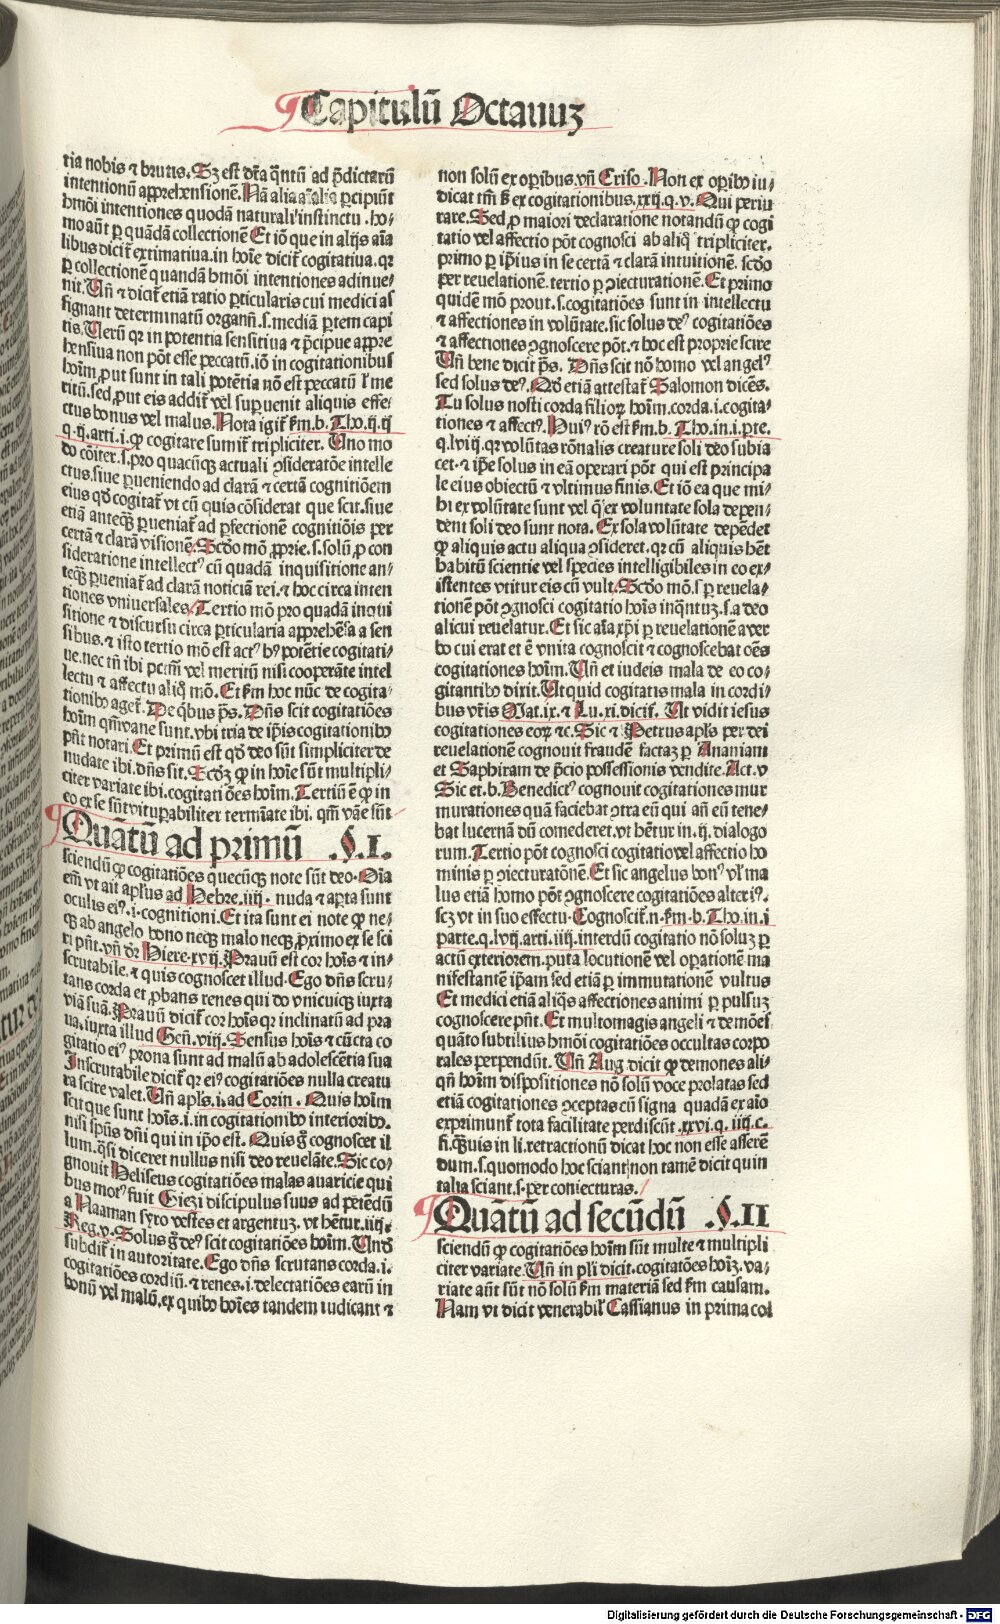 Capitulū Octauuꝫ
tia nobis ⁊ brutis. Sꝫ est dr̄a q̄ntū ad p̄dictarū
intentionū apprehensionē. Nā alia aīalia ꝑcipiūt
hmōi intentiones quodā naturali instinctu. ho-
mo aūt ꝑ quādā collectionē Et iō que in alijs aīa
libus dicit̄ extimatiua. in hoīe dicit̄ cogitatiua. qꝛ
ꝑ collectionē quandā hmōi intentiones adinue-
nit. Un̄ ⁊ dicit̄ etiā ratio ꝑticularis cui medici as
signant determinatū organū. s. mediā ꝑtem capi
tis. Uerū qꝛ in potentia sensitiua ⁊ p̄cipue appre
hensiua non pōt esse peccatū. iō in cogitationibus
hoīm ꝓut sunt in tali potētia nō est peccatū ł me
ritū. sed ꝓut eis addit̄ vel suꝑuenit aliquis effe-
ctus bonus vel malus. Nota igit̄ ẜm. b. Tho. ij. ij
q. ij. arti. i. ꝙ cogitare sumit̄ tripliciter. Uno mo
do cōiter. s. pro quacūqꝫ actuali ꝯsideratōe intelle
ctus. siue ꝑueniendo ad clarā ⁊ certā cognitiōem
eius qd̄ cogitat̄ vt cū quis cōsiderat que scit. siue
etiā anteqꝫ ꝑueniat̄ ad ꝑfectionē cognitiōis per
certā ⁊ clarā visionē. Scdo mō ꝓprie. s. solū ꝓ con
sideratione intellectꝰ cū quadā inquisitione an-
teqꝫ ꝑueniat̄ ad clarā noticiā rei. ⁊ hoc circa inten
tiones vniuersales. Tertio mō pro quadā inqui
sitione ⁊ discursu circa ꝑticularia apprehēsa a sen
sibus. ⁊ isto tertio mō est actꝰ hꝰ potētie cogitati-
ue. nec tn̄ ibi pctm̄ vel meritū nisi cooperāte intel
lectu ⁊ affectu aliq̄ mō. Et ẜm hoc nūc de cogita-
tionibꝰ aget̄. De qͥbus ps̄. Dn̄s scit cogitatiōes
hoīm qm̄ vane sunt. vbi tria de ip̄is cogitationibꝰ
pn̄t notari. Et primū est qꝙ deo sūt simpliciter de
nudate ibi. dn̄s sit. Scdꝫ ꝙ in hoīe sūt multipli-
citer variate ibi. cogitatiōes hoīm. Tertiū ē ꝙ in
eo ex se sūt vituꝑabiliter termiate ibi. qm̄ vāe sūt
Quātū ad primū .§.I.
sciendū ꝙ cogitatiōes quecūqꝫ note sūt deo. Oīa
em̄ vt ait apl̄us ad Hebre. iiij. nuda ⁊ aꝑta sunt
oculis eiꝰ. i. cognitioni. Et ita sunt ei note ꝙ ne-
qꝫ ab angelo bono neqꝫ malo neqꝫ ꝓximo ex se sci
ri pn̄t. vn̄ dr̄ Hiere. xvij. Prauū est cor hoīs ⁊ in-
scrutabile. ⁊ quis cognoscet illud. Ego dn̄s scru-
tans corda et ꝓbans renes qui do vnicuiqꝫ iuxta
viā suā. Prauū dicit̄ cor hoīs qꝛ inclinatū ad pra
ua. iuxta illud Gen̄. viij. Sensus hoīs ⁊ cūcta co
gitatio eiꝰ prona sunt ad malū ab adolescētia sua
Inscrutabile dicit̄ qꝛ eiꝰ cogitatiōes nulla creatu
ra scire valet. Un̄ apl̄s. i. ad Corin. Quis hoīm
scit que sunt hoīs. i. in cogitationibꝰ interioribꝰ.
nisi spūs dn̄i qui in ip̄o est. Quis gͦ cognoscet il
lum. qͣsi diceret nullus nisi deo reuelāte. Sic co-
gnouit Heliseus cogitatiōes malas auaricie qui
bus motꝰ fuit Giezi discipulus suus ad petēdū
a Naaman syro vestes et argentuꝫ. vt hētur. iiij.
Reg. v. Solus gͦ deꝰ scit cogitatiōes hoīm. Und̄
subdit̄ in autoritate. Ego dn̄s scrutans corda. i.
cogitatiōes cordiū. ⁊ renes. i. delectatiōes earū in
bonū vel malū. ex quibꝰ hoīes tandem iudicant ⁊
non solū ex oꝑibus. vn̄ Criso. Non ex oꝑibꝰ iu-
dicat tm̄ ẜ ex cogitationibus. xxij. q. v. Qui periu
rare. Sed ꝓ maiori declaratione notandū ꝙ cogi
tatio vel affectio pōt cognosci ab aliqͦ tripliciter.
primo ꝑ ip̄ius in se certā ⁊ clarā intuitionē. scdo
per reuelationē. tertio ꝑ ꝯiecturationē. Et primo
quidē mō prout. s. cogitatiōes sunt in intellectu
⁊ affectiones in volūtate. sic solus deꝰ cogitatiōes
⁊ affectiones ꝯgnoscere pōt. ⁊ hoc est proprie scire
Un̄ bene dicit ps̄. Dn̄s scit nō homo vel angelꝰ
sed solus deꝰ. Qd̄ etiā attestat̄ Salomon dicēs.
Tu solus nosti corda filioꝝ hoīm. corda. i. cogita-
tiones ⁊ affectꝰ. Huiꝰ rō est ẜm. b. Tho. in. i. pte.
q. lvij. qꝛ volūtas rōnalis creature soli deo subia
cet. ⁊ ip̄e solus in eā operari pōt qui est principa
le eius obiectū ⁊ vltimus finis. Et iō ea que mi-
hi ex volūtate sunt vel qͥ ex voluntate sola depen-
dent soli deo sunt nota. Ex sola volūtate depēdet
ꝙ aliquis actu aliqua ꝯsideret. qꝛ cū aliquis hēt
habitū scientie vel species intelligibiles in eo ex-
istentes vtitur eis cū vult. Scdo mō. s. ꝑ reuela-
tionē pōt ꝯgnosci cogitatio hoīs inqͣntuꝫ. s. a deo
alicui reuelatur. Et sic aīa xp̄i ꝑ reuelationē a ver
bo cui erat et ē vnita cognoscit ⁊ cognoscebat oēs
cogitationes hoīm. Un̄ et iudeis mala de eo co-
gitantibꝰ dixit. Ut quid cogitatis mala in cordi-
bus vr̄is Mat. ix. ⁊ Lu. xi. dicit̄. Ut vidit iesus
cogitationes eoꝝ ⁊c. Sic ⁊ Petrus apl̄s per dei
reuelationē cognouit fraudē factaꝫ ꝑ Ananiam
et Saphiram de p̄cio possessionis vendite. Act. v
Sic et. b. Benedictꝰ cognouit cogitationes mur
murationes quā faciebat ꝯtra eū qui añ eū tene-
bat lucernā dū comederet. vt hētur in. ij. dialogo
rum. Tertio pōt cognosci cogitatio vel affectio ho
minis ꝑ ꝯiecturatōnē. Et sic angelus bonꝰ vł ma
lus etiā homo pōt ꝯgnoscere cogitatiōes alteriꝰ.
scꝫ vt in suo effectu. Cognoscit̄. n. ẜm. b. Tho. in. i
parte. q. lvij. arti. iiij. interdū cogitatio nō soluꝫ ꝑ
actū exteriorem. puta locutionē vel oꝑationē ma
nifestantē ip̄am sed etiā ꝑ immutationē vultus
Et medici etiā aliqͣs affectiones animi ꝑ pulsuꝫ
cognoscere pn̄t. Et multomagis angeli ⁊ demōes
quāto subtilius hmōi cogitatiōes occultas corpo
rales perpendūt. Un̄ Aug dicit ꝙ demones ali-
qn̄ hoīm dispositiones nō solū voce prolatas sed
etiā cogitationes ꝯceptas cū signa quadā ex aīo
exprimunt̄ tota facilitate perdiscūt. xxvi. q. iiij. c.
fi. Quis in li. retractionū dicat hoc non esse asserē
dum. s. quomodo hoc sciant non tamē dicit quin
talia sciant. s. per coniecturas.
Quātū ad secūdū .§.II
sciendū ꝙ cogitatiōes hoīm sūt multe ⁊ multipli
citer variate. Un̄ in pli dicit. cogitatōes hoīꝫ. va-
riate aūt sūt nō solū ẜm materiā sed ẜm causam.
Nam vt dicit venerabił Cassianus in prima col
Digitalisierung gefördert durch die Deutsche Forschungsgemeinschaft - DFG